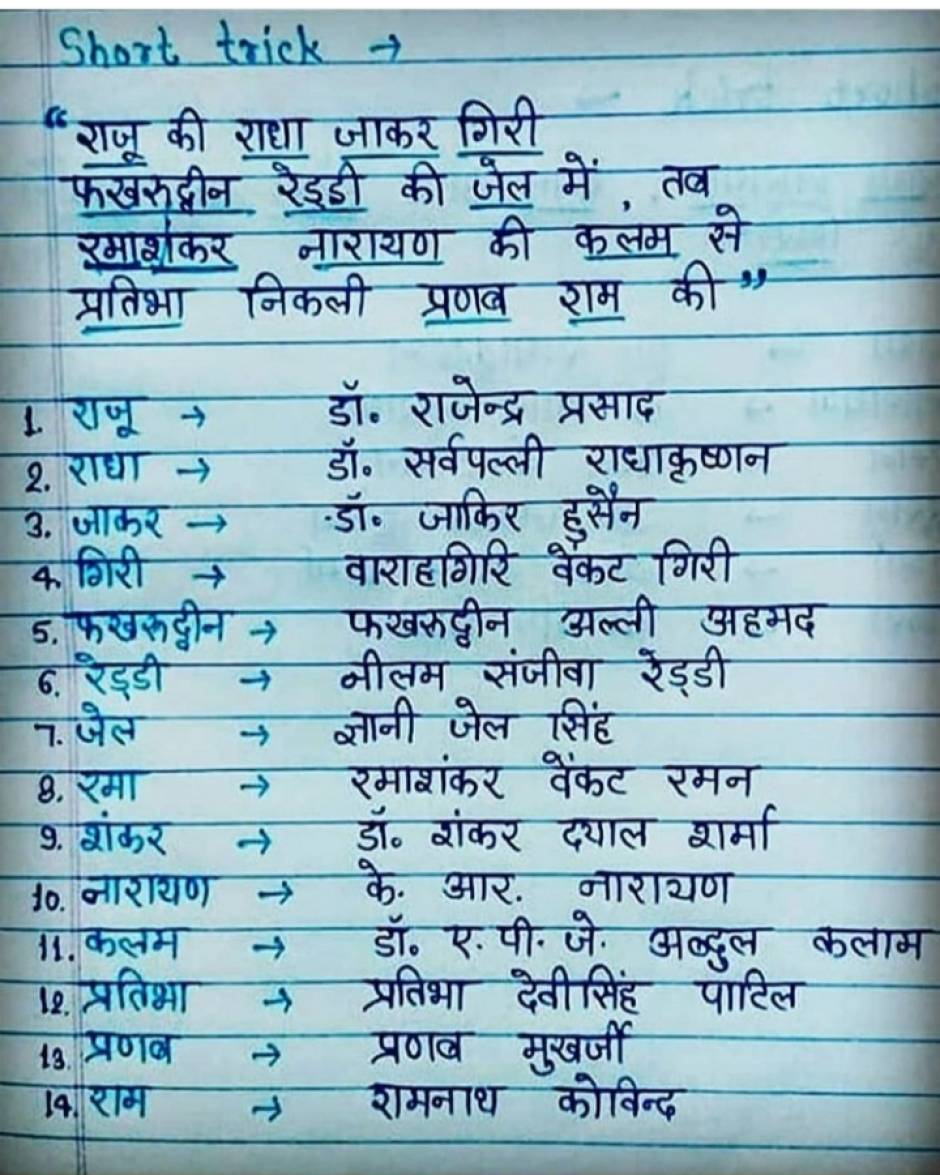 Short trick →
“राजू की राधा जाकर गिरी
फखरुद्दीन रेड्डी की जेल में, तब
रमाशंकर नारायण की कलम से
प्रतिभा निकली प्रणब राम की”
1. राजू → डॉ. राजेन्द्र प्रसाद
2. राधा → डॉ. सर्वपल्ली राधाकृष्णन
3. जाकर → डॉ. जाकिर हुसैन
4. गिरी → वाराहगिरि वेंकट गिरी
5. फखरुद्दीन → फखरुद्दीन अल्ली अहमद
6. रेड्डी → नीलम संजीवा रेड्डी
7. जेल → ज्ञानी जेल सिंह
8. रमा → रमाशंकर वेंकट रमन
9. शंकर → डॉ. शंकर दयाल शर्मा
10. नारायण → के. आर. नारायण
11. कलम → डॉ. ए. पी. जे. अब्दुल कलाम
12. प्रतिभा → प्रतिभा देवीसिंह पाटिल
13. प्रणब → प्रणब मुखर्जी
14. राम → रामनाथ कोविन्द